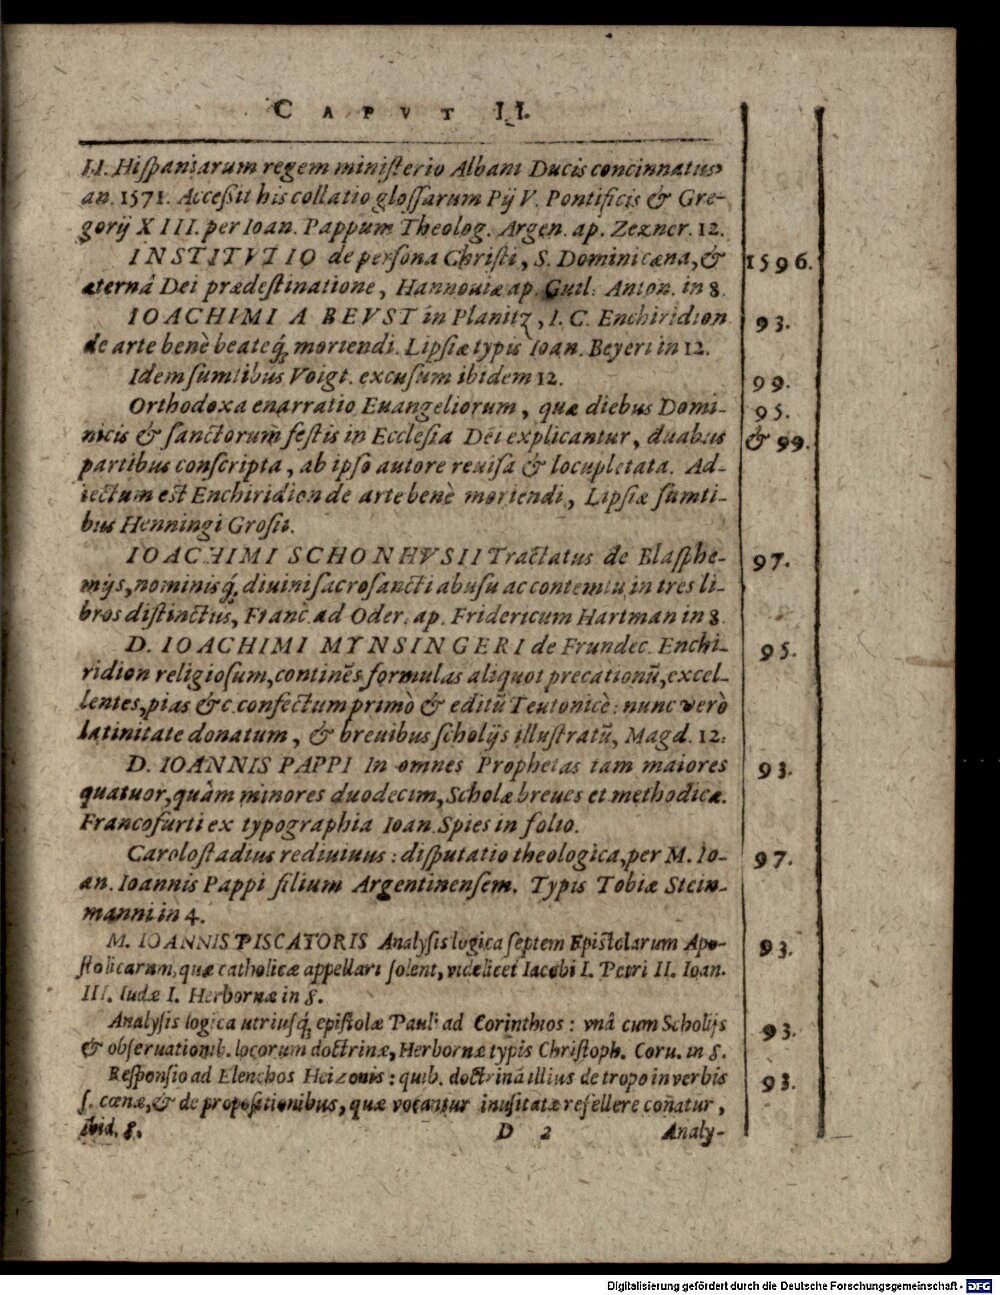 CAPVT II.
II. Hiſpaniarum regem miniſterio Albani Ducis concinnatus
an. 1571. Acceſſit his collatio gloſſarum Pij V. Pontificis & Gre-
gorij XIII. per Ioan. Pappum Theolog. Argen. ap. Zezner. 12.
INSTITVTIO de perſona Chriſti, S. Dominicæna, & 1596.
æternâ Dei prædeſtinatione, Hannouiæ ap. Guil. Anton. in 8.
IOACHIMI A BEVST in Planitz, I. C. Enchiridion 93.
de arte benè beateq́; moriendi. Lipſiæ typis Ioan. Beyeri in 12.
Idem ſumtibus Voigt. excuſum ibidem 12. 99.
Orthodoxa enarratio Euangeliorum, quæ diebus Domi- 95.
nicis & ſanctorum feſtis in Eccleſia Dei explicantur, duabus & 99.
partibus conſcripta, ab ipſo autore reuiſa & locupletata. Ad-
iectum eſt Enchiridion de arte benè moriendi, Lipſiæ ſumti-
bus Henningi Groſii.
IOACHIMI SCHONHVSII Tractatus de Blaſphe- 97.
mijs, nominisq́; diuini ſacroſancti abuſu ac contemtu in tres li-
bros diſtinctus, Franc. ad Oder. ap. Fridericum Hartman in 8.
D. IOACHIMI MYNSINGERI de Frundec. Enchi- 95.
ridion religioſum, continēs formulas aliquot precationū, excel-
lentes, pias &c. confectum primò & editū Teutonicè: nunc verò
latinitate donatum, & breuibus ſcholijs illuſtratū, Magd. 12.
D. IOANNIS PAPPI In omnes Prophetas tam maiores 93.
quatuor, quàm minores duodecim, Scholæ breues et methodicæ.
Francofurti ex typographia Ioan. Spies in folio.
Caroloſtadius rediuiuus: diſputatio theologica, per M. Io- 97.
an. Ioannis Pappi filium Argentinenſem. Typis Tobiæ Stein-
manni in 4.
M. IOANNIS PISCATORIS Analyſis logica ſeptem Epiſtolarum Apo- 93.
ſtolicarum, quæ catholicæ appellari ſolent, videlicet Iacobi I. Petri II. Ioan.
III. Iudæ I. Herbornæ in 8.
Analyſis logica utriuſq́; epiſtolæ Pauli ad Corinthios: vnâ cum Scholijs 93.
& obſeruationib. locorum doctrinæ, Herbornæ typis Chriſtoph. Coru. in 8.
Reſponſio ad Elenchos Heizonis: quib. doctrinā illius de tropo in verbis 93.
ſ. cœnæ, & de propoſitionibus, quæ vocantur inuſitatæ refellere conatur,
ibid. 8. D 2 Analy-
Digitalisierung gefördert durch die Deutsche Forschungsgemeinschaft - DFG